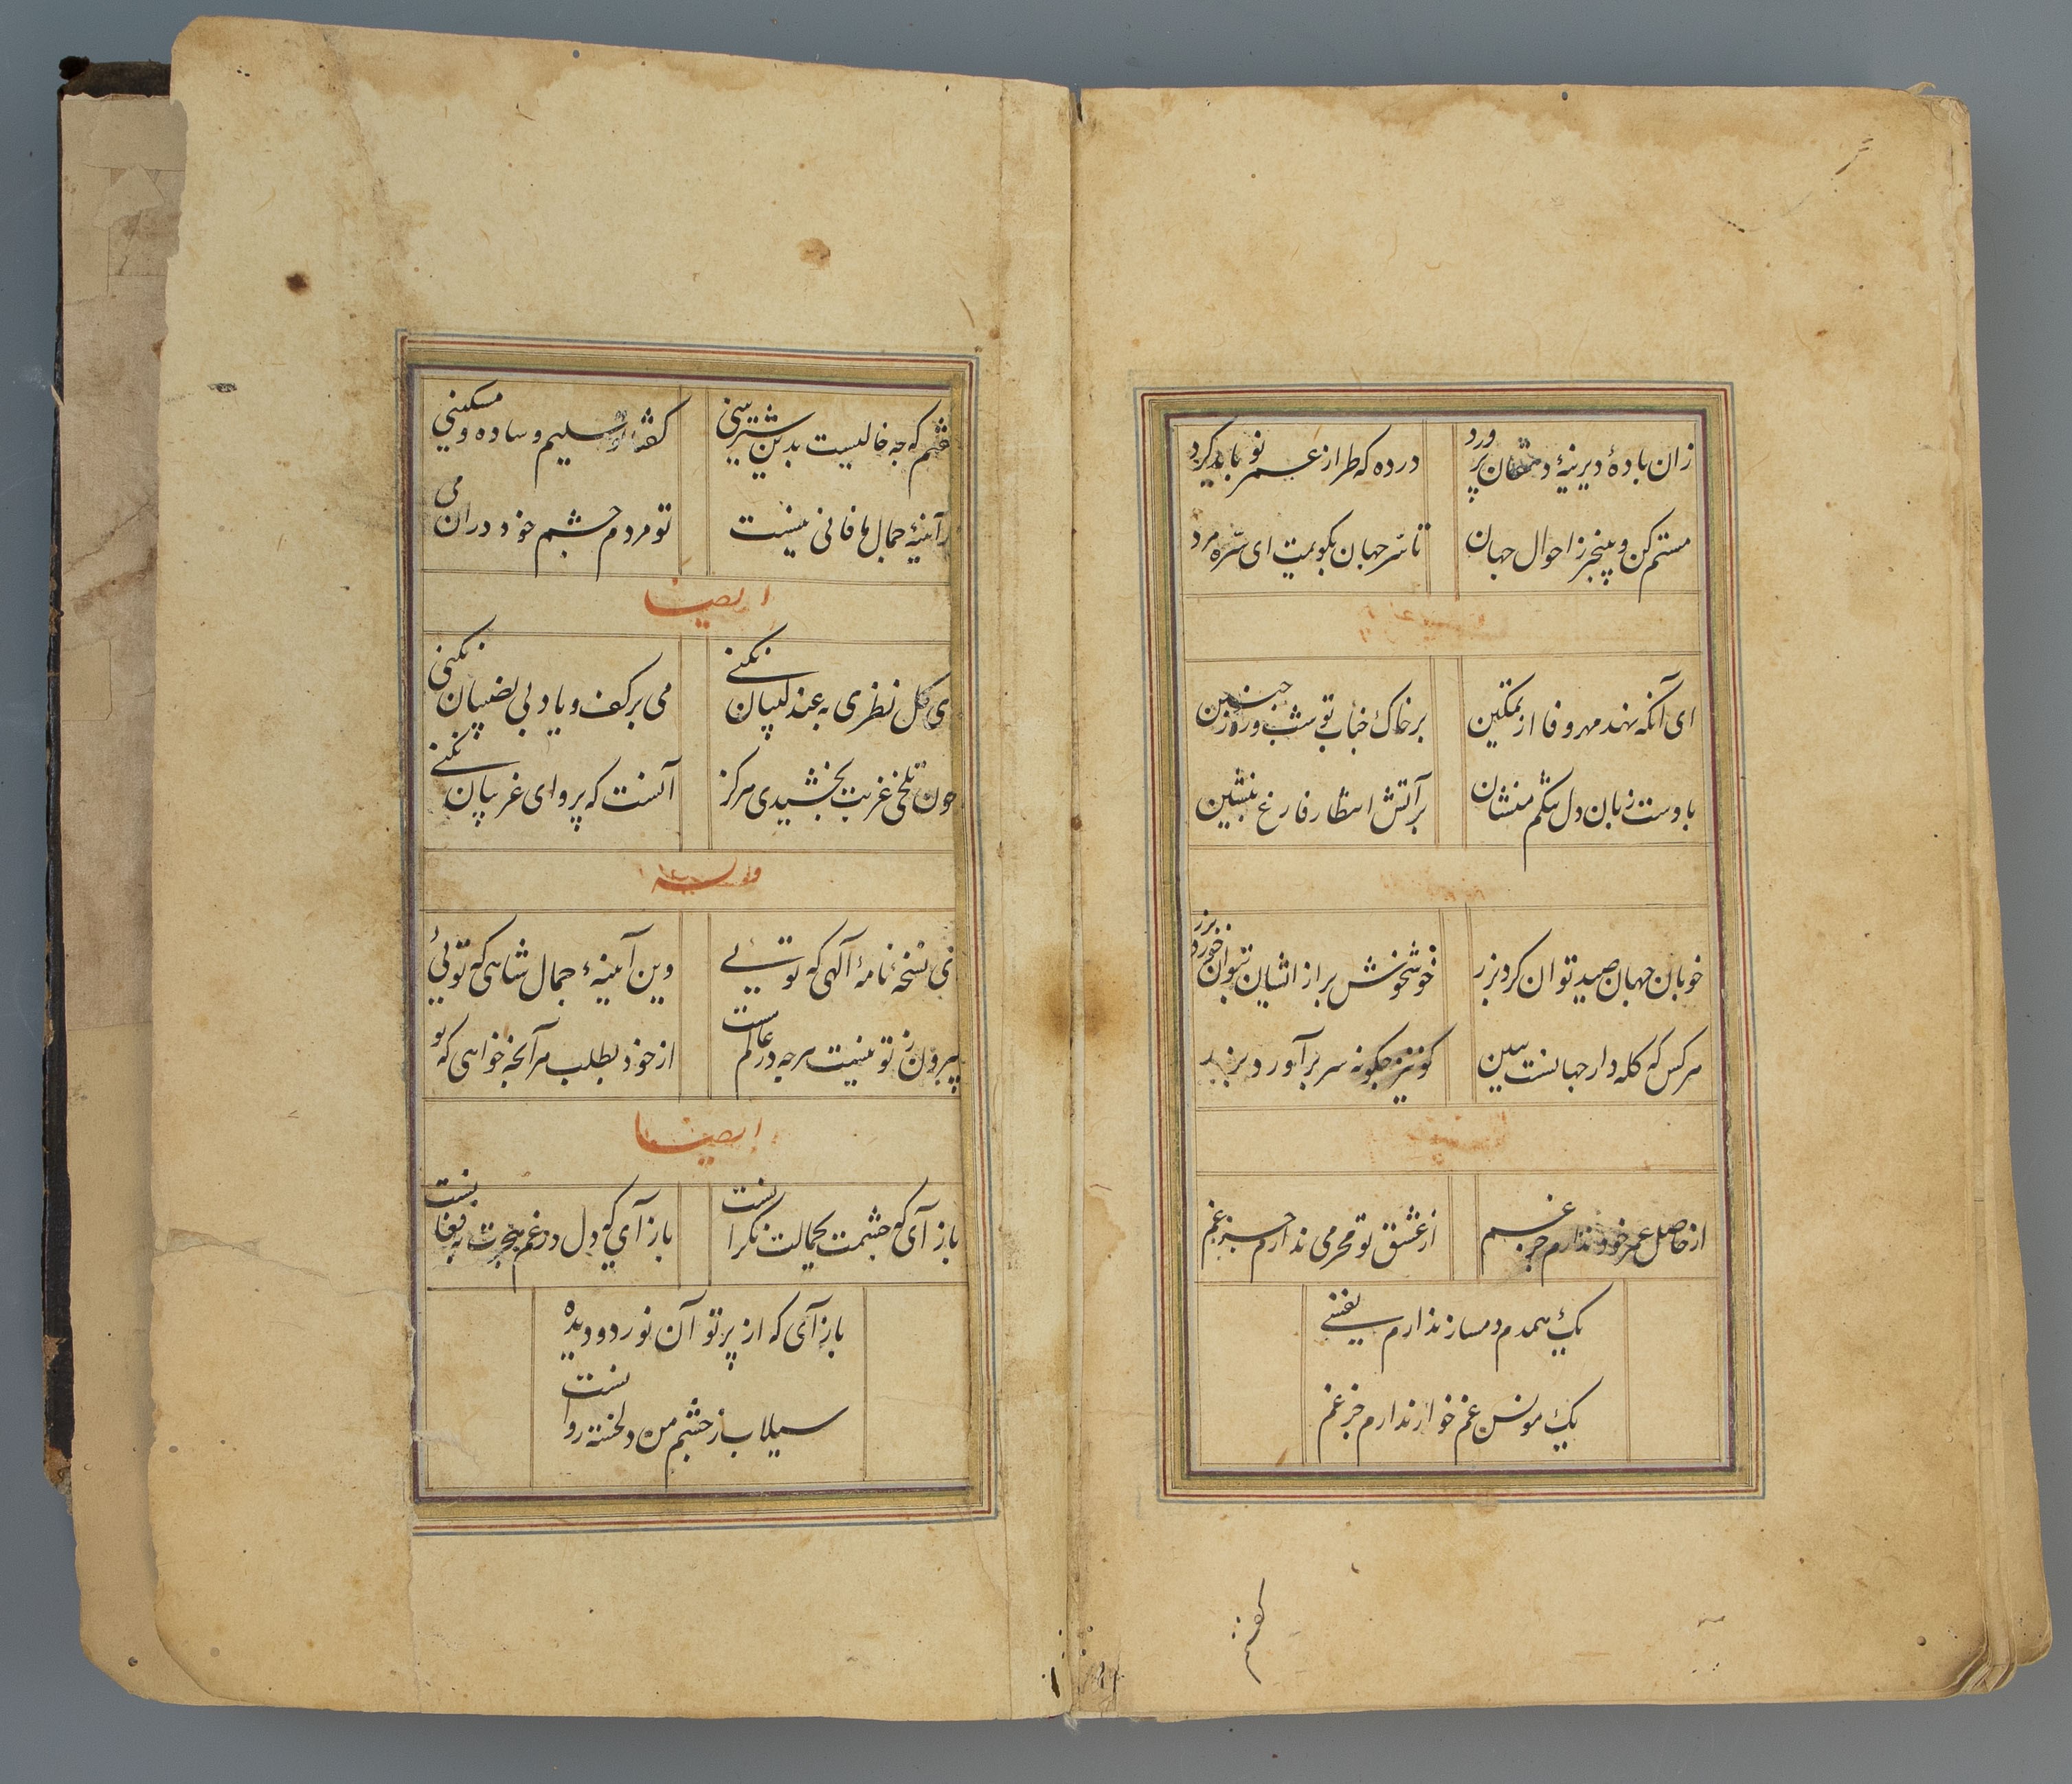 زان بادهٔ دیرینهٔ دهقان پرورد
درده که طراز عمر نو باید کرد
مستم کن و بیخبر ز احوال جهان
تا سر جهان بگویمت ای سره مرد
ای آنکه نهند مهر و فا از تمکین
بر خاک جناب تو شب و روز جبین
با دست زبان دل تنگم منشان
بر آتش انتظار فارغ بنشین
خوبان جهان صید توان کرد بزر
خوشخوش بر از اشان بتوان خورد بزر
نرکس که کله دار جهانست ببین
کو نیز چکونه سر برآورد بزر
از حاصل عمر خود ندارم جز غم
از عشق تو محرمی ندارم جز غم
یک همدم دمساز ندارم یفنی
یک مونس غم خوار ندارم جز غم
کفتم
کفتم که چه خالیست بدین شیرینی
کفتا تو سلیم و ساده و مسکینی
در آینهٔ جمال ما خالی نیست
تو مردم چشم خود دران می
ایضا
ای کل نظری به عندلیبان نکنی
می بر کف و یاد بی نصیبان نکنی
چون تلخی غربت نچشیدی هرکز
آنست که پروای غریبان نکنی
وله
ای نسخهٔ نامهٔ الهی که تویی
وین آینهٔ جمال شاهی که تویی
بیرون ز تو نیست هرچه در عالمست
از خود بطلب هر آنچه خواهی که تو
ایضا
باز آی که چشمت بجمالت نکرانست
باز آی که دل در غم هجرت به فغانست
باز آی که از پرتو آن نور دو دیده
سیلاب ز چشم من دلخسته روانست